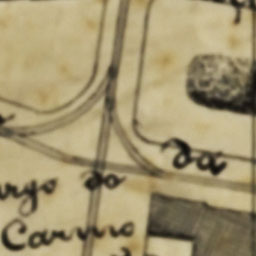 da
argo do
Carmo